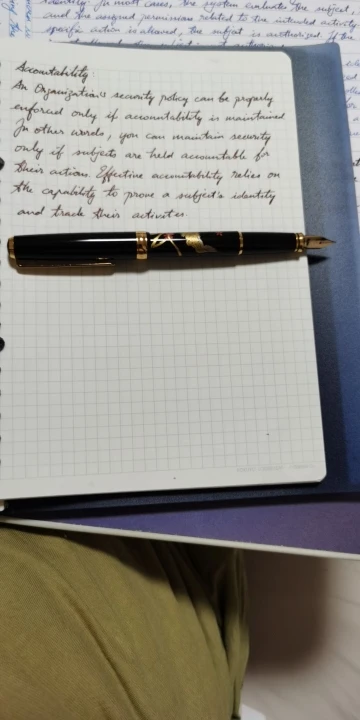 identity. In most cases, the system evaluates the subject,
and the assigned permissions related to the intended activity
specific action is allowed, the subject is authorized. If the
Accountability
An Organization's security policy can be properly
enforced only if accountability is maintained.
In other words, you can maintain security
only if subjects are held accountable for
their actions. Effective accountability relies on
the capability to prove a subject's identity
and track their activities.